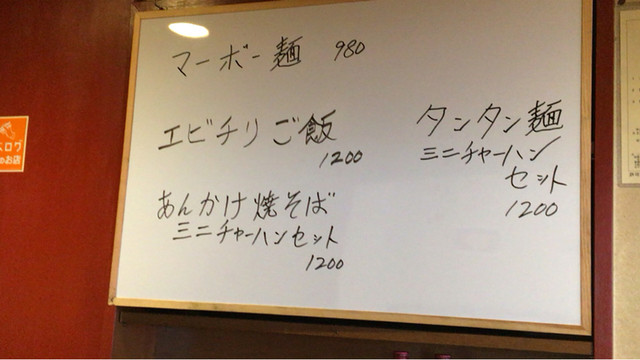 マーボー麺 980
エビチリご飯
1200
あんかけ焼そば
ミニチャーハンセット
1200
タンタン麺
ミニチャーハン
セット
1200
ログ
のお店